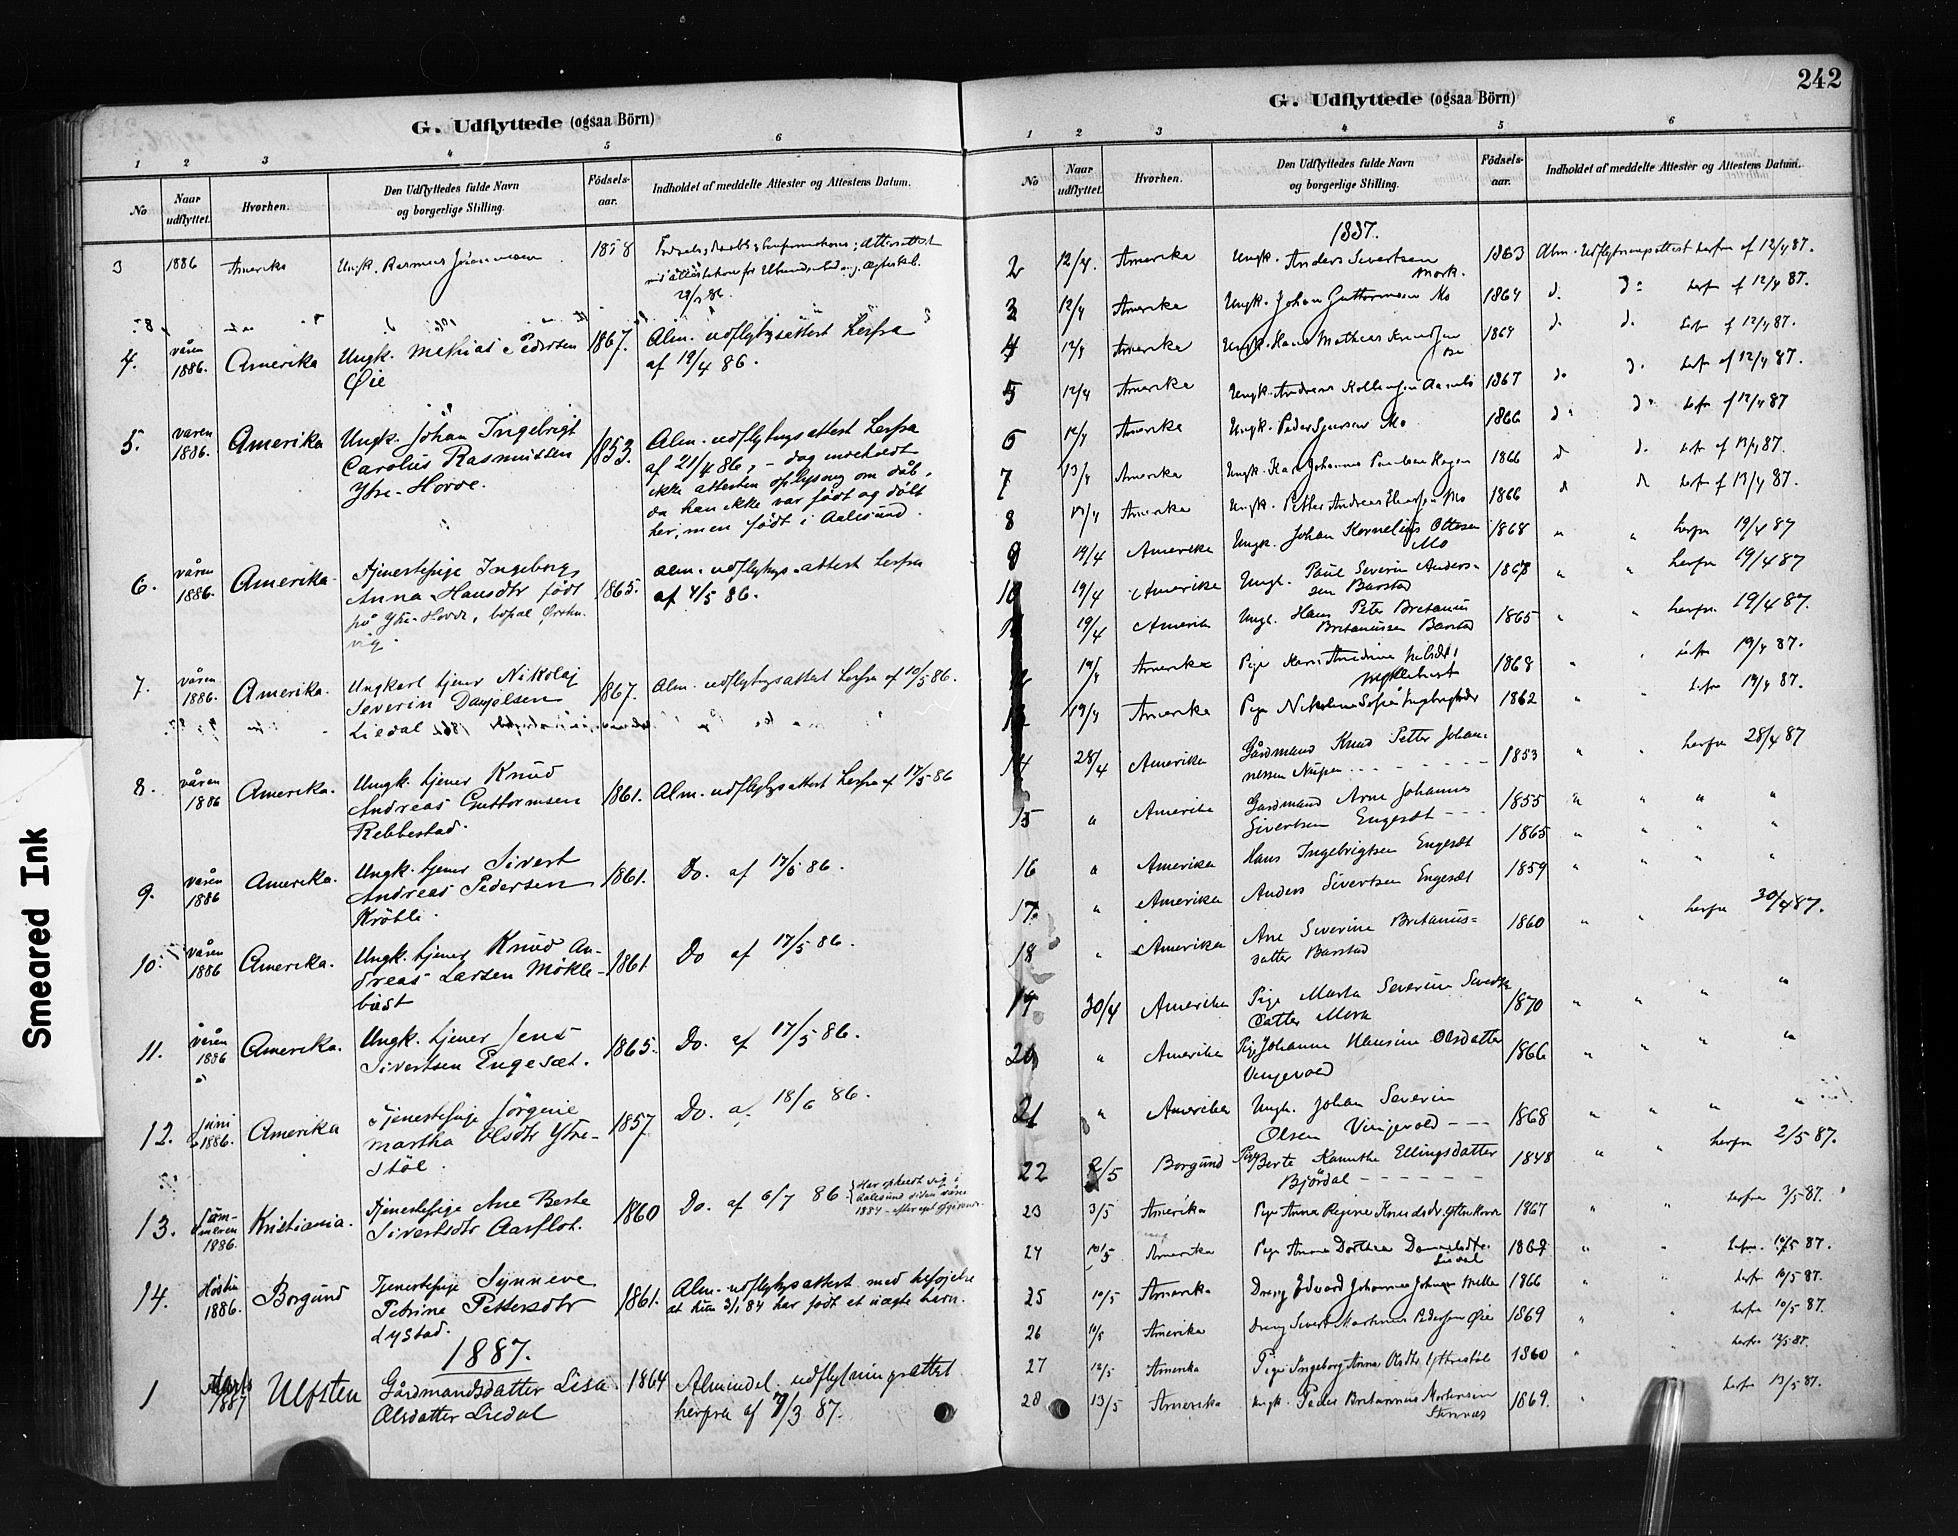 242
G. Udflyttede (ogsaa Börn)
1 2 3 4 5 6
No
Naar udflyttet.
Hvorhen.
Den Udflyttedes fulde Navn
og borgerlige Stilling.
Födsels-
aar.
Indholdet af meddelte Attester og Attestens Datum.
3 1886 Amerika Ungk. Rasmus 1858
29/3 86.
4. våren 1886. Amerika Ungk. Mathias Pedersen 1867. Alm. udflytngsattest herfra
Øie af 19/4 86.
5. våren 1886. Amerika Ungk. Johan Ingebrigt 1853. Alm. udflytngsattest herfra
Carolus Rasmussen af 21/4 86, - dog indeholdt
Ytre-Hovde. ikke attesten oplysning om dåb,
da han ikke var født og døbt
her, men født i Aalesund.
6. våren 1886. Amerika. Tjenestepige Ingeborg 1865. Alm. udflytngs-attest herfra
Anna Hansdtr født af 4/5 86.
på Ytre-Hovde, bopæl Ørsten-
vig.
7. våren 1886. Amerika. Ungkarl tjener Nikolaj 1867. Alm. udflytngsattest herfra af 10/5 86.
Severin Danjelsen
Liedal
8. våren 1886 Amerika. Ungk. tjener Knud 1861. Alm. udflytngsattest herfra af 17/5 86
Andreas Guttormsen
Rebbestad.
9. våren 1886 Amerika. Ungk. tjener Sivert 1861. Do. af 17/5 86.
Andreas Pedersen
Krøvli.
10. våren 1886 Amerika. Ungk. tjener Knud An- 1861. Do af 17/5 86.
dreas Larsen Møkle-
bust
11. våren 1886 Amerika. Ungk. tjener Jens 1865. Do. af 17/5 86.
Sivertsen Engesæt.
12. Juni 1886. Amerika Tjenestepige Jørgine 1857 Do. af 18/6 86.
Martha Olsdtr Ytre-
Støl.
13. Som-
meren 1886. Kristiania. Tjenestepige Ane Berte 1860 Do. af 6/7 86 Har opholdt sig i
Sivertsdtr Aarflot. Aalesund siden våren
1884 - efter eget opgivende.
14. Høsten 1886. Borgund Tjenestepige Synneve 1861. Alm. udflytngsattest med tilføjelse
Petrine Pettersdtr at hun 3/1 84 har født et uægte barn.
Lystad.
1887.
1 Marts 1887 Ulfsten Gårdmandsdatter Lisa 1864 Almindel. udflytningsattest
Olsdatter Liedal herfra af 7/3 87.
G. Udflyttede (ogsaa Börn)
1 2 3 4 5 6
No
Naar
udflyttet.
Hvorhen.
Den Udflyttedes fulde Navn
og borgerlige Stilling.
Födsels-
aar.
Indholdet af meddelte Attester og Attestens Datum.
1887.
2 12/4. Amerika Ungk. Anders Sivertsen 1863 Alm. Udflytningsattest herfra af 12/4 87.
Mork.
3 12/4 Amerika Ungk. Johan Guttormsen Mo 1864 d. do herfr af 12/4 87.
4 12/4 Amerika Ungk. Hans Mathias Knudsen 1864 do do herfr af 12/4 87.
5 12/4 Amerika Ungk. Andreas 1867 do do herfr af 12/4 87.
6 12/4 Amerika Ungk. Peder Mo 1866 do do herfr af 12/4 87
7 13/4 Amerika Ungk. Karl Johannes Paulsen Hagen 1866 d d. herfr af 13/4 87.
8 13/4 Amerika Ungk. Petter Andreas Mo 1866 d d herfr af 13/4 87.
9 19/4 Amerika Ungk. Johan Kornelius Ottesen 1868 " " herfra 19/4 87
Mo
10 19/4 Amerika Ungk. Paul Severin Anders- 1868 " " herfra 19/4 87
sen Barstad
19/4 Amerika Ungk. Hans Peter Britanus 1865 " " herfra 19/4 87.
Britanussen Barstad
19/4 Amerika Pige Karn 1868 " " herfra 19/4 87.
Myklebust
19/4 Amerika Pige Nikoline Sofie 1862 " herfra 19/4 87.
14 28/4 Amerika Gårdmand Knud Petter Johan- 1853 " " herfra 28/4 87
nessen Nupen
15 " Amerika Gardmand Arne Johannes 1855 " " " "
Sivertsen Engesæt
16 " Amerika Hans Ingebrigtsen Engesæt 1865 " " " "
17. " Amerika Anders Sivertsen Engesæt 1859 " " " "
18 " Amerika Ane Siverine Britanus- 1860 " " herfra 30/4 87.
datter Barstad
19 30/4 Amerika Pige Marta Severine 1870 " " " "
datter Mork
20 " Amerika Pige Johanne Hansine Olsdatter 1866 " " " "
Vingevold
21 " Amerika Ungk. Johan Severin 1868 " " " "
Olsen Vingevold
22 2/5 Borgund Pige Berte Kanutte Ellingsdatter 1848 " " herfra 2/5 87.
Bjørdal
23 3/5 Amerika Pige Anna Regine Knudsdr Ytre Hovde 1867 " " herfra 3/5 87.
24 10/5 Amerika Pige Anna Dorthea 1862 " " herfra 10/5 87.
Liedal
25 10/5 Amerika Dreng Edvard Johannes Johnsen 1866 " " herfr 10/5 87.
26 10/5 Amerika Dreng Sivert Martinus Pedersen Øie 1869 " " herfra 10/5 87.
27 12/5 Amerika Pige Ingeborg Anna Olsdtr Yttrestøl 1860 " herfra 12/5 87.
28 13/5 Amerika Ungk. Peder Britannus Mortensen 1869. " herfra 13/5 87.
Stennæs
Smeared Ink